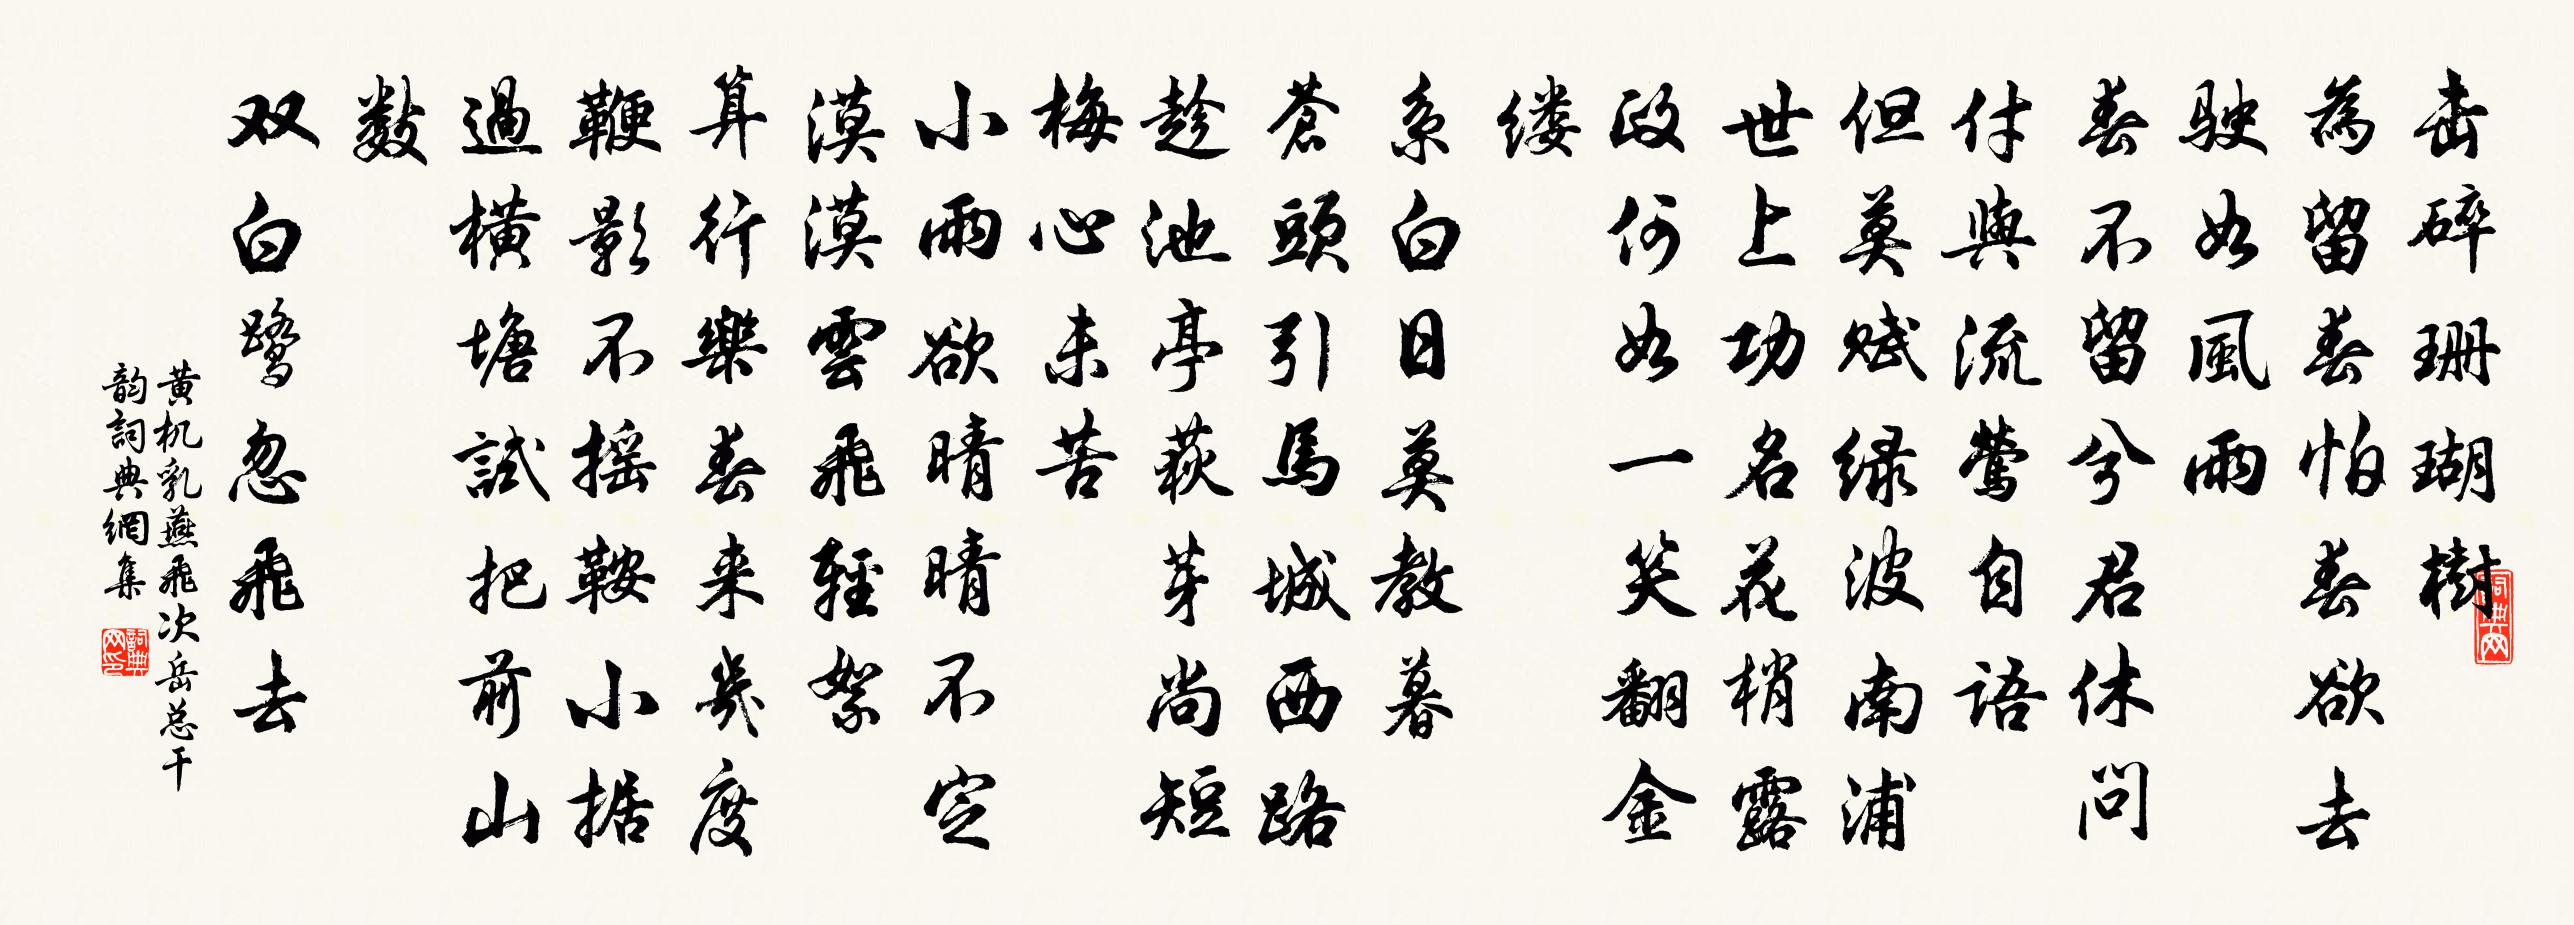 击碎珊瑚樹
為留春怕春欲去
駛如風雨
春不留兮君休問
付與流鶯自語
但莫赋绿波南浦
世上功名花梢露
政何如一笑翻金
缕
系白日莫教暮
蒼頭引馬城西路
趁池亭荻芽尚短
梅心未苦
小雨欲晴晴不定
漠漠雲飛輕絮
算行樂春来幾度
鞭影不摇鞍小据
過横塘試把前山
数
双白鹭忽飛去
黄机乳燕飛次岳总干
韵詞典網集
詞典网
詞典网印